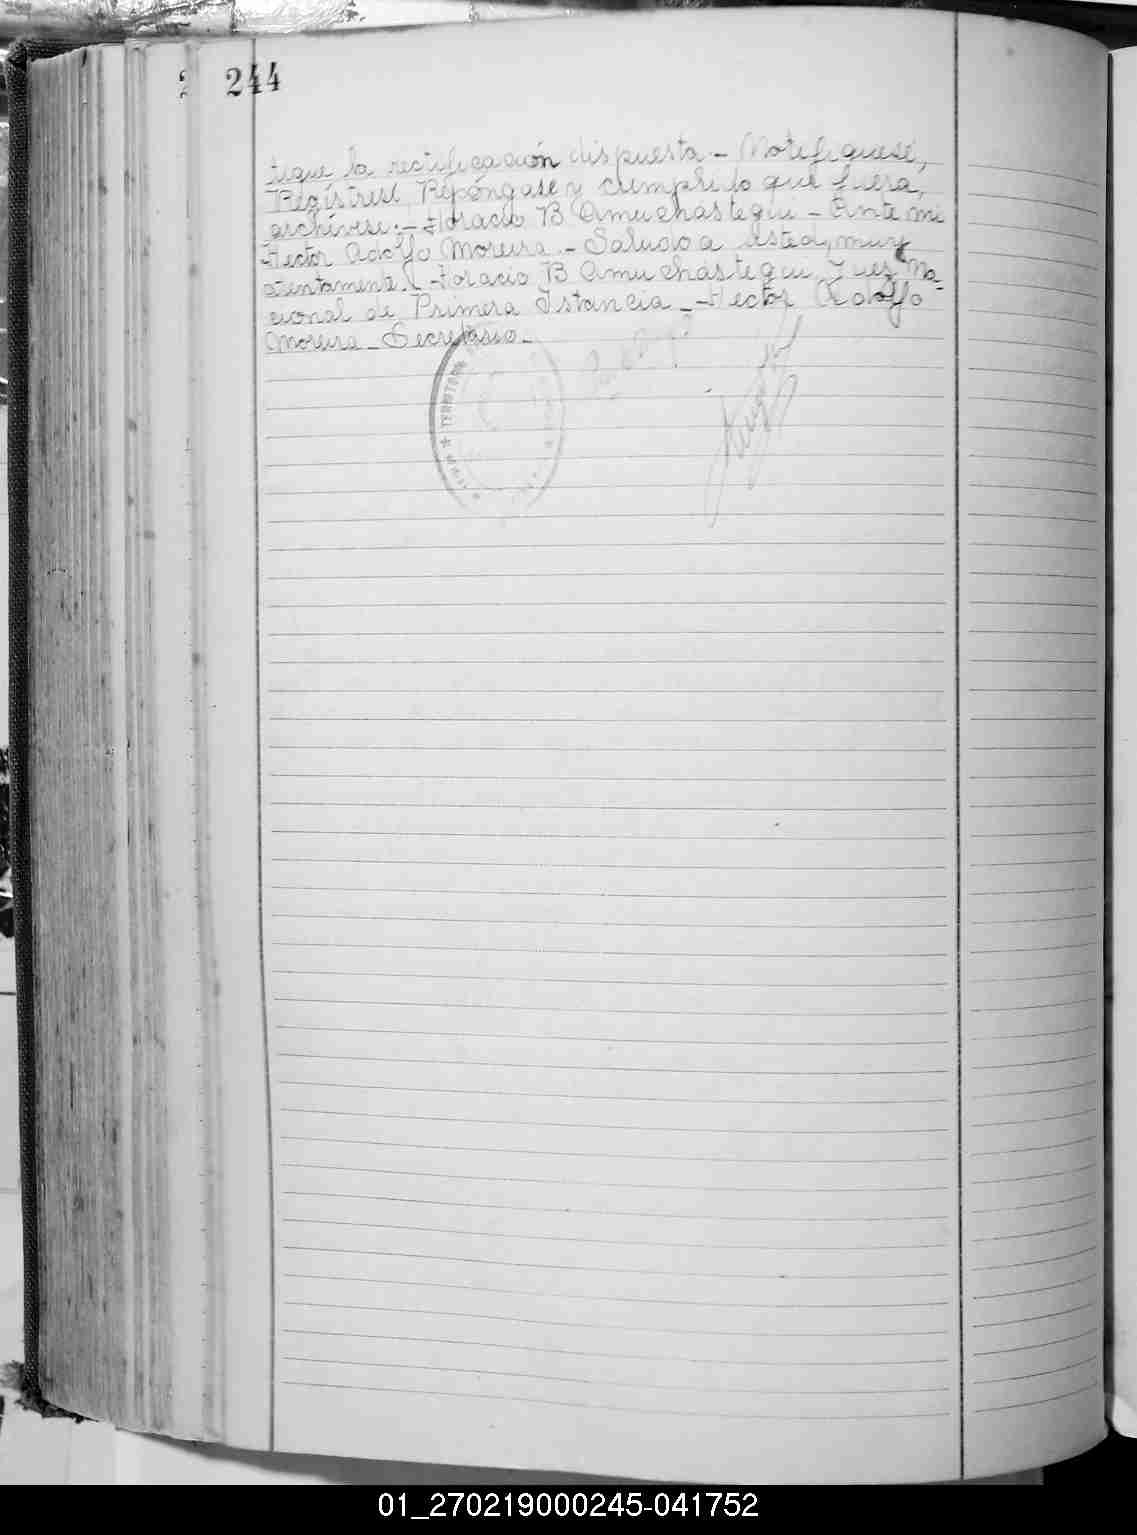 244
tique la rectificación dispuesta.- Notifíquese,
Regístrese, Repóngase y cumplido que fuera,
archívese.- Horacio B Amuchastegui - Ante mi
Hector Adolfo Moreira.- Saludo a usted, muy
atentamente.- Horacio B Amuchastegui Juez Na-
cional de Primera Istancia - Hector Adolfo
Moreira - Secretario -
TERRITORIO
01_270219000245-041752